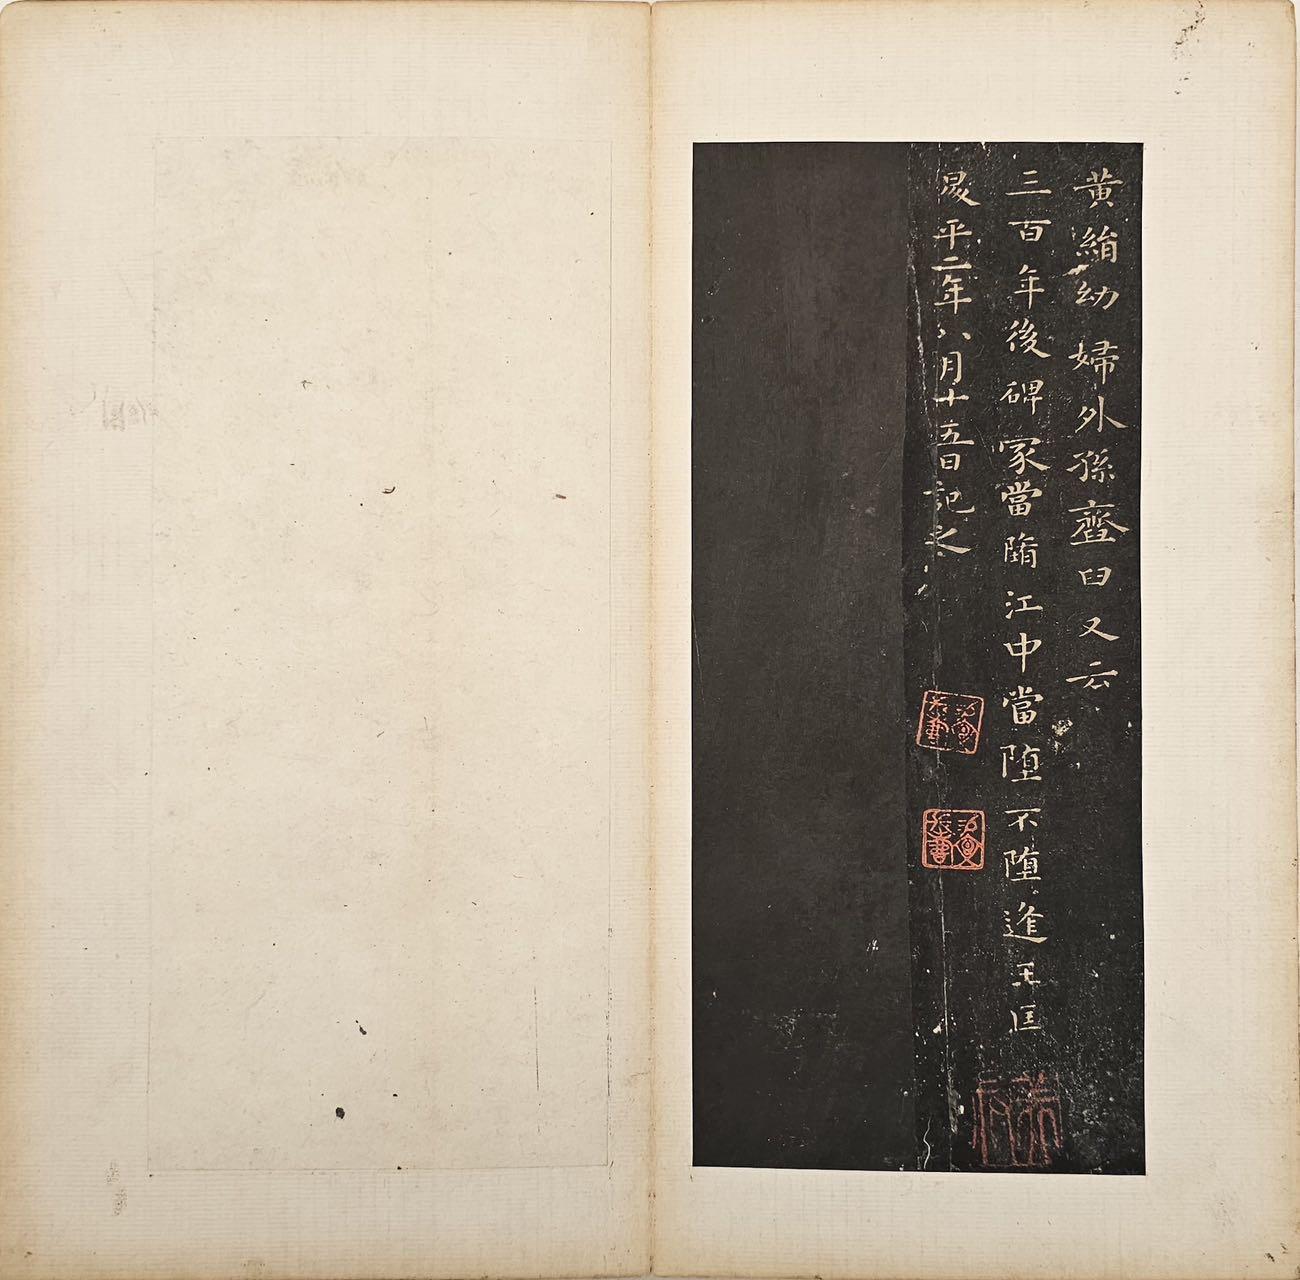 黃絹幼婦外孫齏臼又云
三百年後碑冢當隋江中當墮不墮逢王匡
昇平二年八月十五日記之